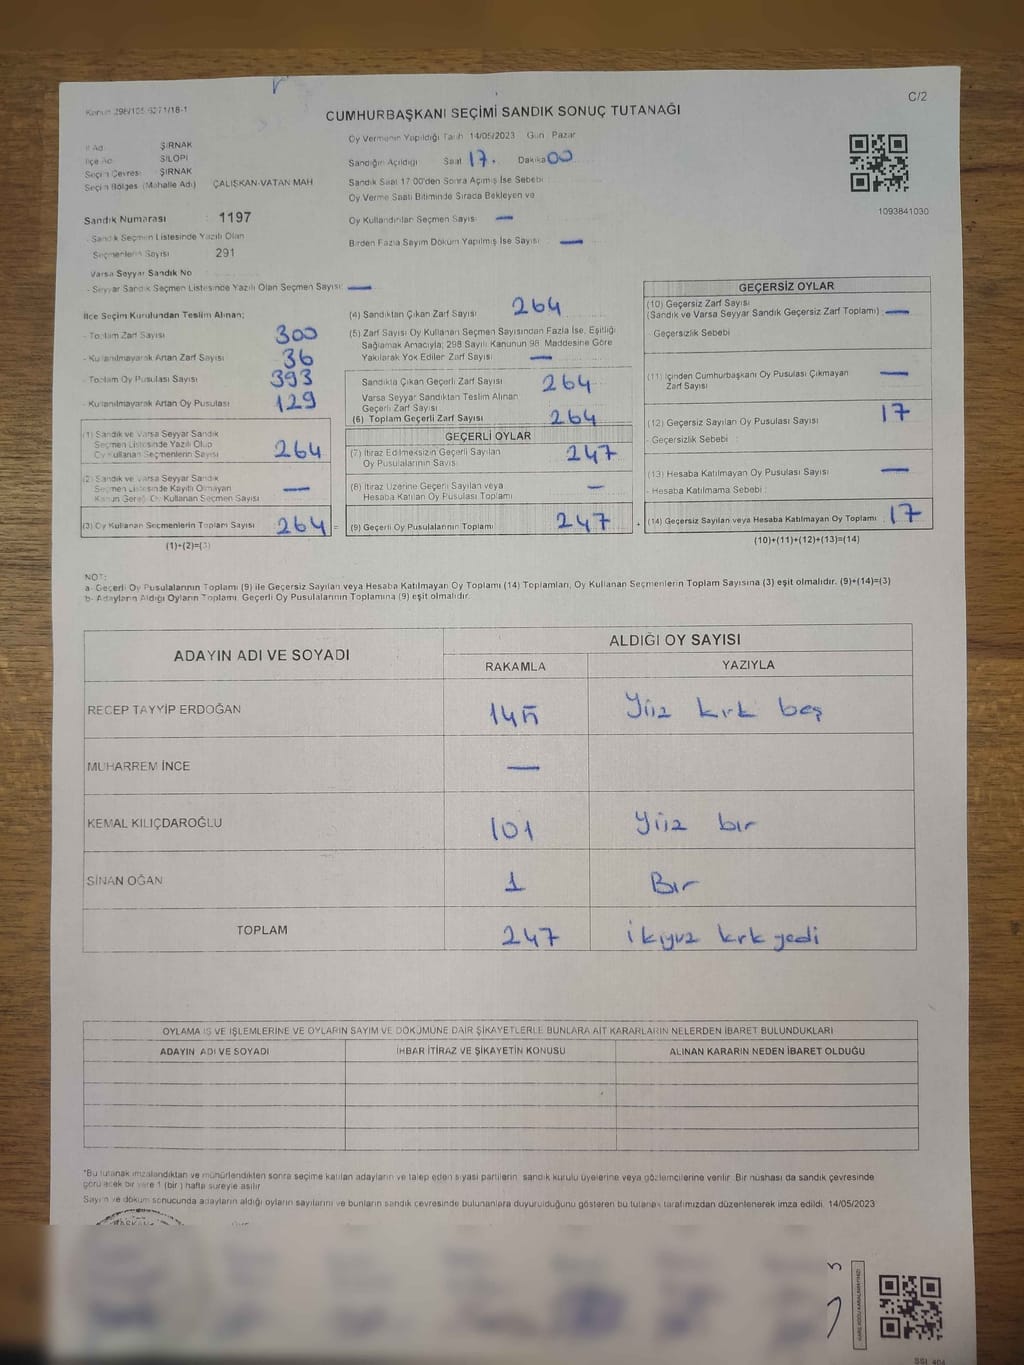 Kanun 298/105 6271/18-1
C/2
CUMHURBAŞKANI SEÇİMİ SANDIK SONUÇ TUTANAĞI
İl Adı ŞIRNAK
İlçe Adı SİLOPİ
Seçim Çevresi ŞIRNAK
Seçim Bölgesi (Mahalle Adı) ÇALIŞKAN-VATAN MAH
Sandık Numarası : 1197
- Sandık Seçmen Listesinde Yazılı Olan
Seçmenlerin Sayısı 291
Varsa Seyyar Sandık No
- Seyyar Sandık Seçmen Listesinde Yazılı Olan Seçmen Sayısı: —
Oy Vermenin Yapıldığı Tarih 14/05/2023 Gün Pazar
Sandığın Açıldığı Saat 17. Dakika 00
Sandık Saat 17:00'den Sonra Açımış İse Sebebi
Oy Verme Saati Bitiminde Sırada Bekleyen ve
Oy Kullandırılan Seçmen Sayısı —
Birden Fazla Sayım Döküm Yapılmış İse Sayısı —
1093841030
İlçe Seçim Kurulundan Teslim Alınan;
- Toplam Zarf Sayısı 300
- Kullanılmayarak Artan Zarf Sayısı 36
- Toplam Oy Pusulası Sayısı 393
- Kullanılmayarak Artan Oy Pusulası 129
(1) Sandık ve Varsa Seyyar Sandık
Seçmen Listesinde Yazılı Olup
Oy Kullanan Seçmenlerin Sayısı 264
(2) Sandık ve Varsa Seyyar Sandık
Seçmen Listesinde Kayıtlı Olmayan
Kanun Gereği Oy Kullanan Seçmen Sayısı —
(3) Oy Kullanan Seçmenlerin Toplam Sayısı 264 =
(1)+(2)=(3)
(4) Sandıktan Çıkan Zarf Sayısı 264
(5) Zarf Sayısı Oy Kullanan Seçmen Sayısından Fazla İse, Eşitliği
Sağlamak Amacıyla; 298 Sayılı Kanunun 98. Maddesine Göre
Yakılarak Yok Edilen Zarf Sayısı —
Sandıkla Çıkan Geçerli Zarf Sayısı 264
Varsa Seyyar Sandıktan Teslim Alınan
Geçerli Zarf Sayısı
(6) Toplam Geçerli Zarf Sayısı 264
GEÇERLİ OYLAR
(7) İtiraz Edilmeksizin Geçerli Sayılan
Oy Pusulalarının Sayısı 247
(8) İtiraz Üzerine Geçerli Sayılan veya
Hesaba Katılan Oy Pusulası Toplamı —
(9) Geçerli Oy Pusulalarının Toplamı 247 +
GEÇERSİZ OYLAR
(10) Geçersiz Zarf Sayısı
(Sandık ve Varsa Seyyar Sandık Geçersiz Zarf Toplamı) —
Geçersizlik Sebebi
(11) İçinden Cumhurbaşkanı Oy Pusulası Çıkmayan
Zarf Sayısı —
(12) Geçersiz Sayılan Oy Pusulası Sayısı 17
- Geçersizlik Sebebi :
(13) Hesaba Katılmayan Oy Pusulası Sayısı —
- Hesaba Katılmama Sebebi :
(14) Geçersiz Sayılan veya Hesaba Katılmayan Oy Toplamı 17
(10)+(11)+(12)+(13)=(14)
NOT:
a- Geçerli Oy Pusulalarının Toplamı (9) ile Geçersiz Sayılan veya Hesaba Katılmayan Oy Toplamı (14) Toplamları, Oy Kullanan Seçmenlerin Toplam Sayısına (3) eşit olmalıdır. (9)+(14)=(3)
b- Adayların Aldığı Oyların Toplamı, Geçerli Oy Pusulalarının Toplamına (9) eşit olmalıdır.
ADAYIN ADI VE SOYADI
ALDIĞI OY SAYISI
RAKAMLA YAZIYLA
RECEP TAYYİP ERDOĞAN 145 Yüz kırk beş
MUHARREM İNCE —
KEMAL KILIÇDAROĞLU 101 Yüz bir
SİNAN OĞAN 1 Bir
TOPLAM 247 ikiyüz kırk yedi
OYLAMA İŞ VE İŞLEMLERİNE VE OYLARIN SAYIM VE DÖKÜMÜNE DAİR ŞİKAYETLERLE BUNLARA AİT KARARLARIN NELERDEN İBARET BULUNDUKLARI
ADAYIN ADI VE SOYADI İHBAR İTİRAZ VE ŞİKAYETİN KONUSU ALINAN KARARIN NEDEN İBARET OLDUĞU
*Bu tutanak imzalandıktan ve mühürlendikten sonra seçime katılan adayların ve talep eden siyasi partilerin sandık kurulu üyelerine veya gözlemcilerine verilir. Bir nüshası da sandık çevresinde
görülecek bir yere 1 (bir) hafta süreyle asılır.
Sayım ve döküm sonucunda adayların aldığı oyların sayılarını ve bunların sandık çevresinde bulunanlara duyurulduğunu gösteren bu tutanak tarafımızdan düzenlenerek imza edildi. 14/05/2023